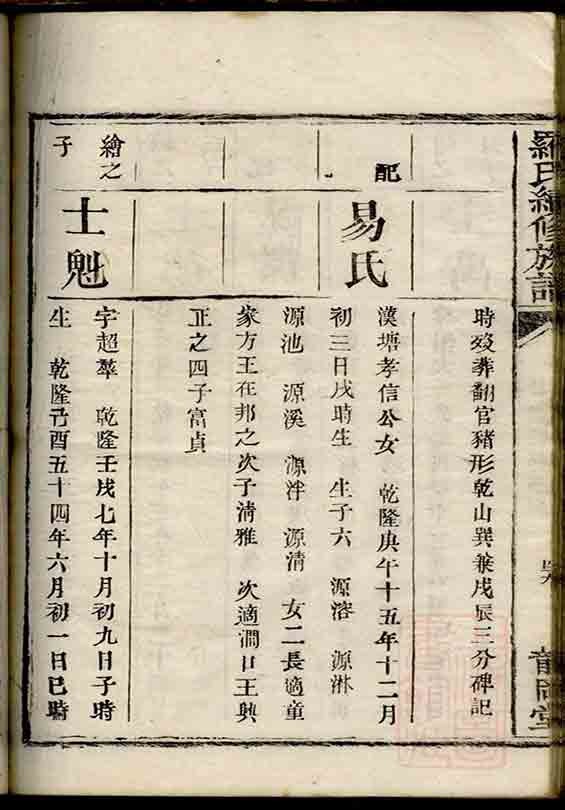 羅氏續修族譜
時歿葬翻官豬形乾山巽兼戌辰三分碑記
配
易氏
漢塘孝信公女 乾隆庚午十五年十二月
初三日戌時生 生子六 源溶 源淋
源池 源溪 源泮 源清 女二長適童
家方王在邦之次子清雅 次適澗口王興
正之四子富貞
繪之
子
士魁
字超羣 乾隆壬戌七年十月初九日子時
生 乾隆己酉五十四年六月初一日巳時